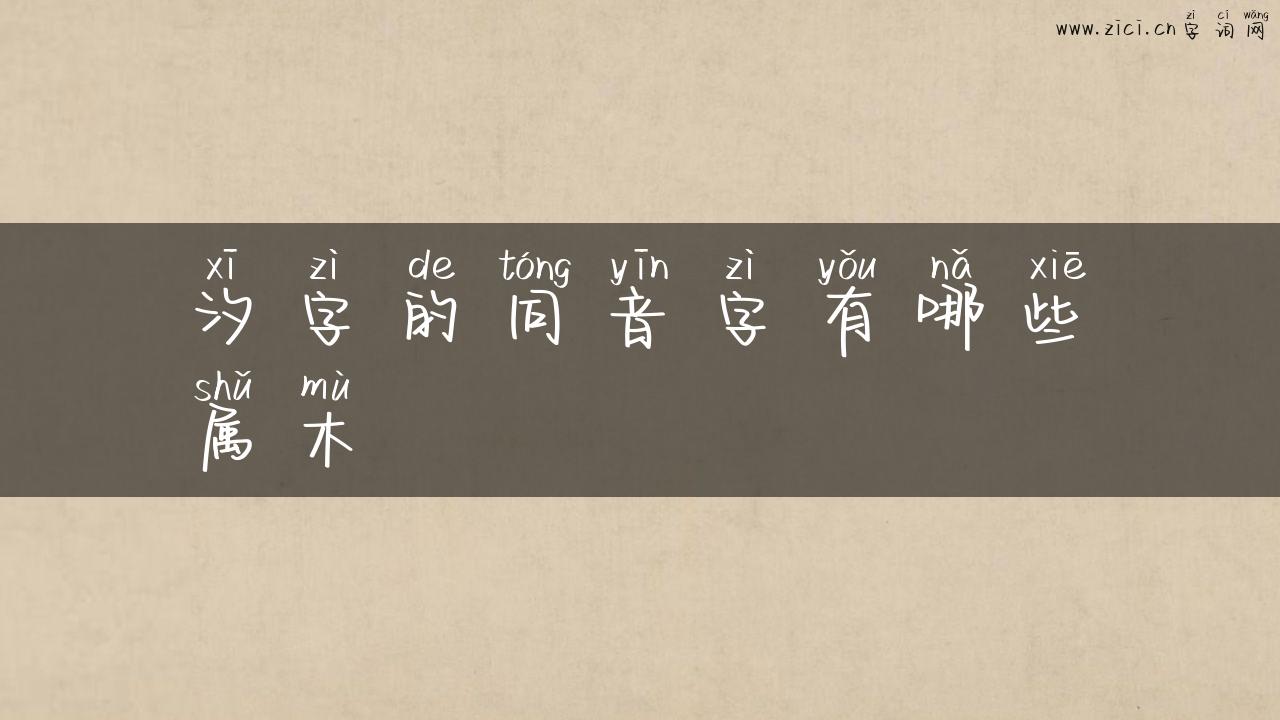 zì cí wǎng
www.zici.cn 字词网
xī zì de tóng yīn zì yǒu nǎ xiē
汐字的同音字有哪些
shǔ mù
属木